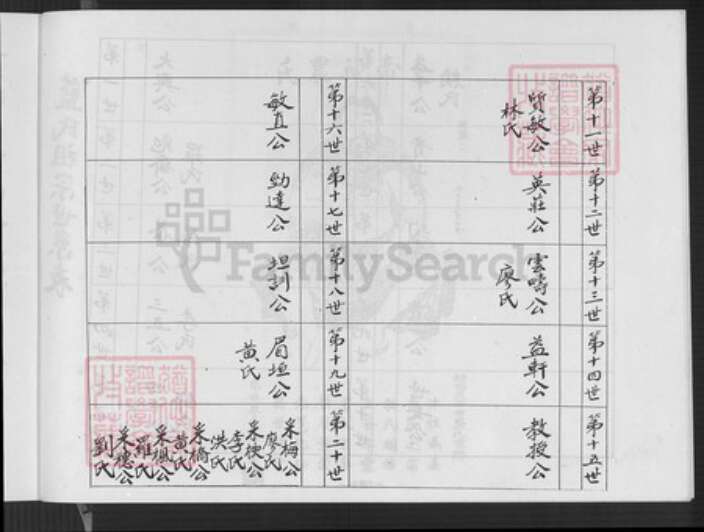 第十一世
質敏公
林氏
第十二世
英莊公
第十三世
雲疇公
廖氏
第十四世
益軒公
第十五世
教授公
第十六世
敏直公
第十七世
勁達公
第十八世
坦訓公
第十九世
眉垣公
黃氏
第二十世
采梅公
廖氏
采梗公
李氏
洪氏
采橋公
黃氏
采楓公
羅氏
采穗公
劉氏
FamilySearch